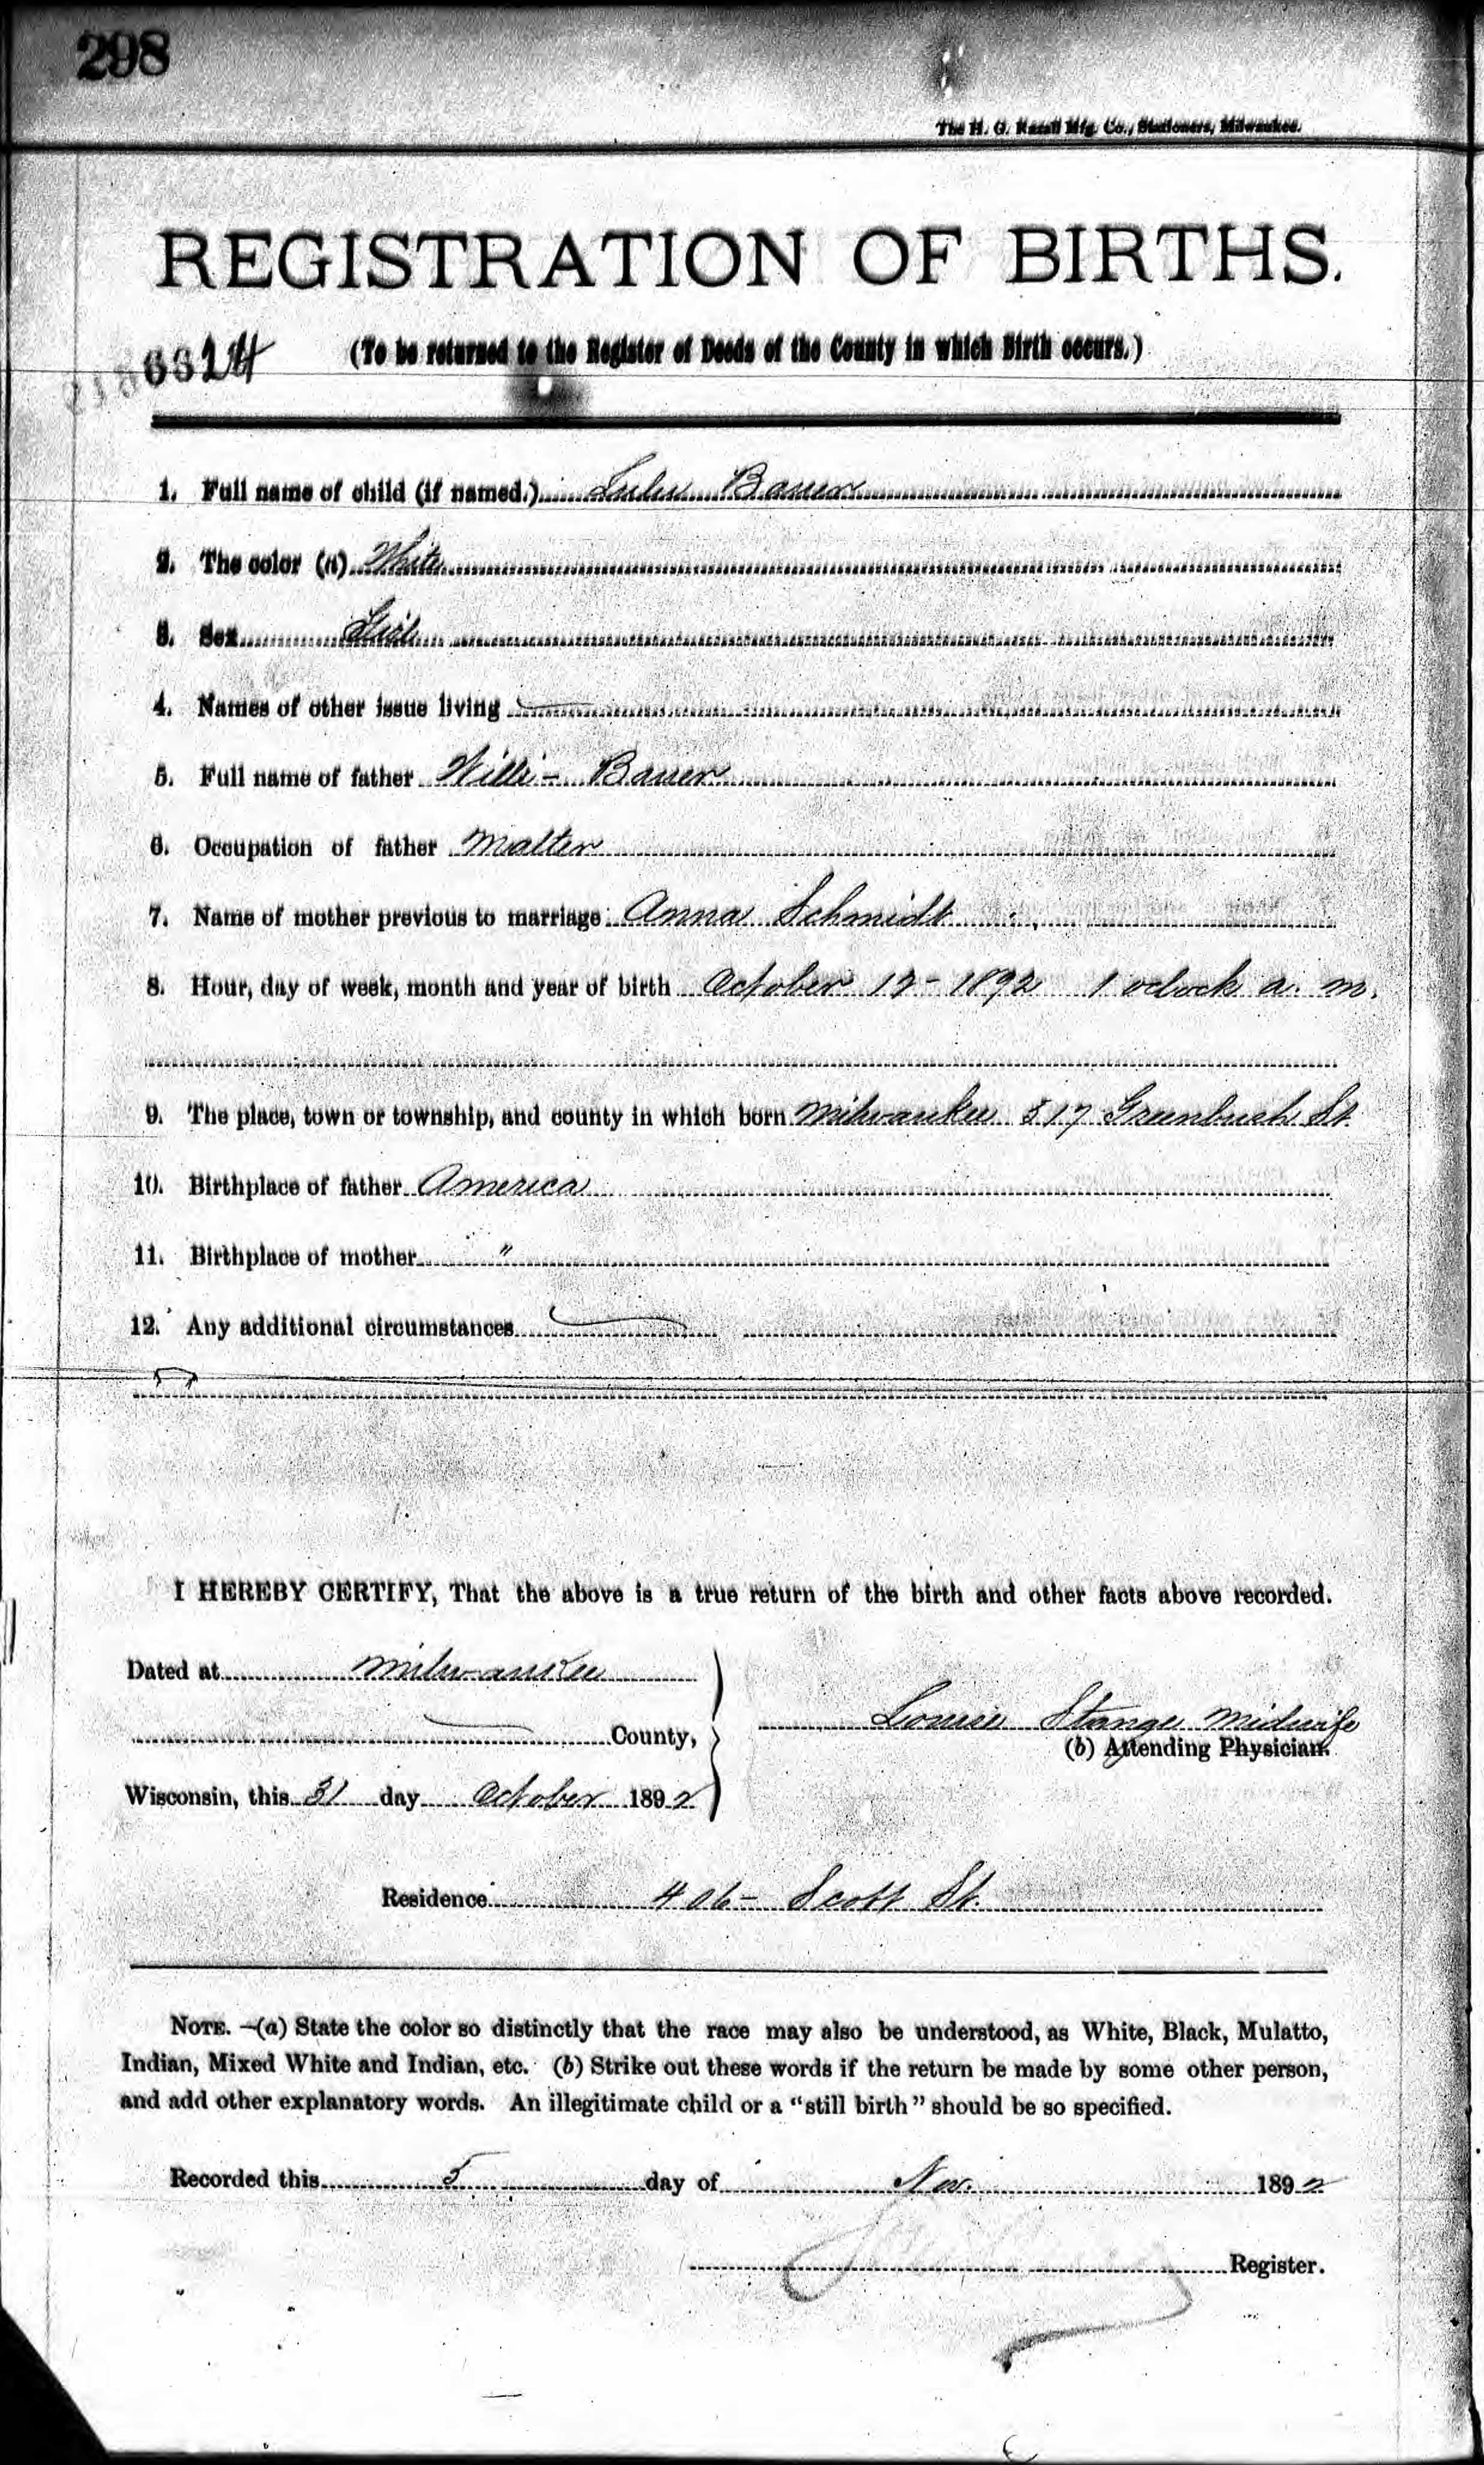 298
The H. G. Razall Mfg. Co., Stationers, Milwaukee.
REGISTRATION OF BIRTHS.
(To be returned to the Register of Deeds of the County in which Birth occurs.)
1. Full name of child (if named.) Lulu Bauer
2. The color (a) White
3. Sex Girl
4. Names of other issue living
5. Full name of father Willi - Bauer
6. Occupation of father Malter
7. Name of mother previous to marriage Anna Schmidt
8. Hour, day of week, month and year of birth October 12 - 1892 1 oclock a. m.
9. The place, town or township, and county in which born Milwaukee 517 Greenbush St.
10. Birthplace of father America
11. Birthplace of mother "
12. Any additional circumstances
I HEREBY CERTIFY, That the above is a true return of the birth and other facts above recorded.
Dated at Milwaukee
County,
Louise Stange Midwife
(b) Attending Physician.
Wisconsin, this 31 day October 1892
Residence 406 - Scott St.
NOTE. —(a) State the color so distinctly that the race may also be understood, as White, Black, Mulatto,
Indian, Mixed White and Indian, etc. (b) Strike out these words if the return be made by some other person,
and add other explanatory words. An illegitimate child or a "still birth" should be so specified.
Recorded this 5 day of Nov. 1892
Register.